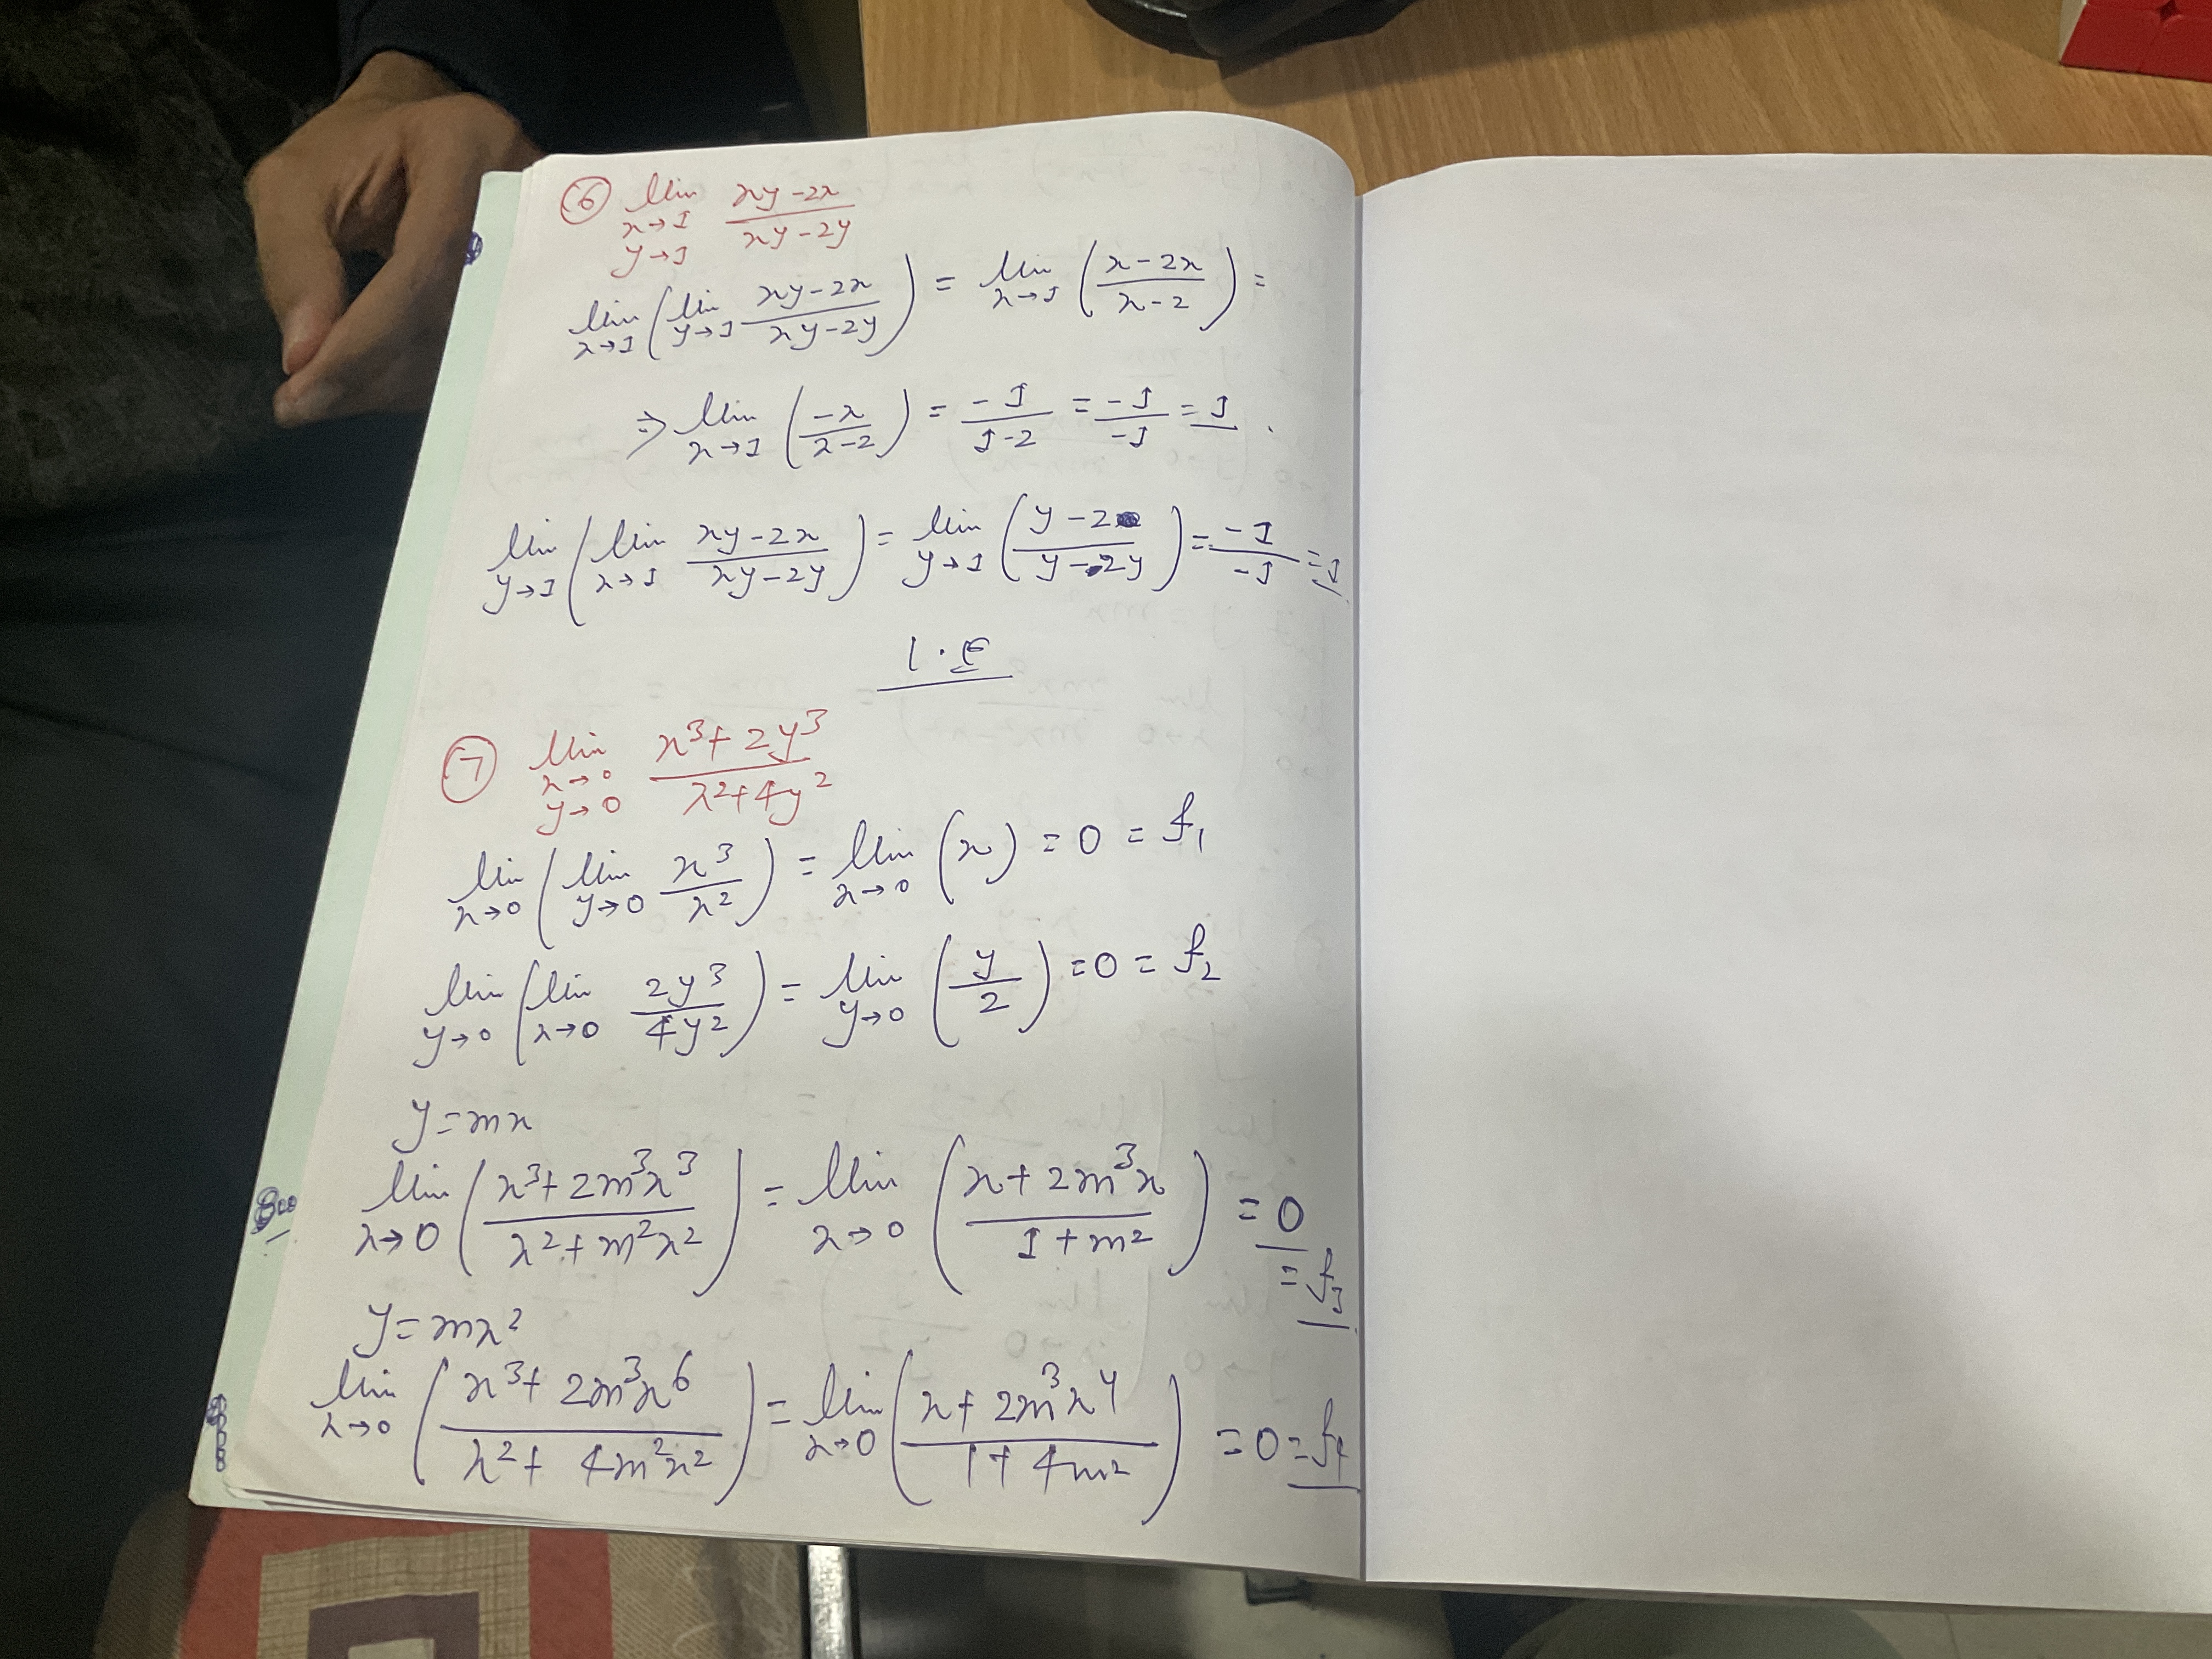 ⑥ lim x→1 y→1 (xy-2x)/(xy-2y)
lim x→1 ( lim y→1 (xy-2x)/(xy-2y) ) = lim x→1 ( (x-2x)/(x-2) ) =
⇒ lim x→1 ( (-x)/(x-2) ) = (-1)/(1-2) = (-1)/(-1) = 1 .
lim y→1 ( lim x→1 (xy-2x)/(xy-2y) ) = lim y→1 ( (y-2)/(y-2y) ) = (-1)/(-1) = 1
⑦ lim x→0 y→0 (x³+2y³)/(x²+4y²)
lim x→0 ( lim y→0 x³/x² ) = lim x→0 (x) = 0 = f₁
lim y→0 ( lim x→0 2y³/4y² ) = lim y→0 ( y/2 ) = 0 = f₂
y=mx
lim x→0 ( (x³+2m³x³)/(x²+m²x²) ) = lim x→0 ( (x+2m³x)/(1+m²) ) = 0
= f₃
y=mx²
lim x→0 ( (x³+2m³x⁶)/(x²+4m²x²) ) = lim x→0 ( (x+2m³x⁴)/(1+4m²) ) = 0 = f₄